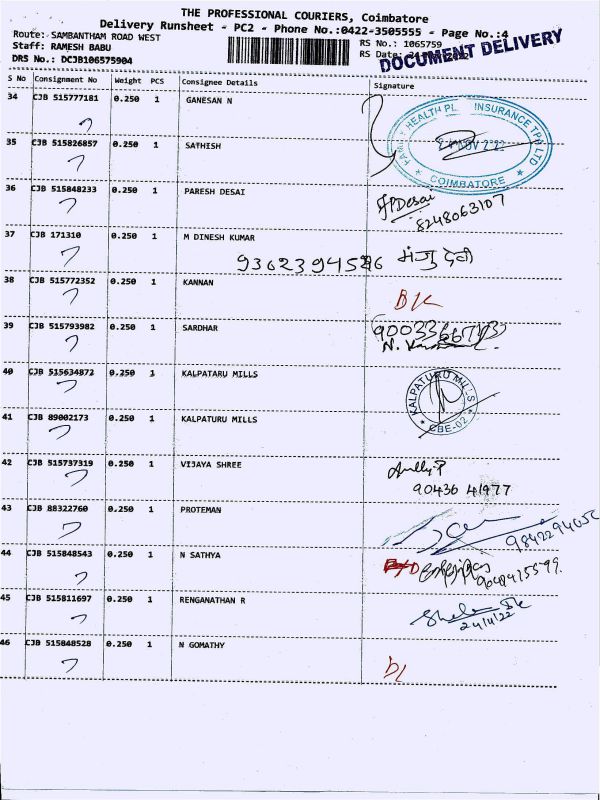 THE PROFESSIONAL COURIERS, Coimbatore
Delivery Runsheet - PC2 - Phone No.:0422-3505555 - Page No.:4
Route: SAMBANTHAM ROAD WEST
RS No.: 1065759
Staff: RAMESH BABU
RS Date:
DOCUMENT DELIVERY
DRS No.: DCJB106575904
S No Consignment No Weight PCS Consignee Details Signature
34 CJB 515777181 0.250 1 GANESAN N
HEALTH PL INSURANCE TPA LTD
NOV
COIMBATORE
35 CJB 515826857 0.250 1 SATHISH
36 CJB 515848233 0.250 1 PARESH DESAI
Desai
8248063107
37 CJB 171310 0.250 1 M DINESH KUMAR
मंजु देवी
38 CJB 515772352 0.250 1 KANNAN
39 CJB 515793982 0.250 1 SARDHAR
40 CJB 515634872 0.250 1 KALPATARU MILLS
KALPATURU MILLS
CBE-02
41 CJB 89002173 0.250 1 KALPATURU MILLS
42 CJB 515737319 0.250 1 VIJAYA SHREE
90436 41977
43 CJB 88322760 0.250 1 PROTEMAN
44 CJB 515848543 0.250 1 N SATHYA
45 CJB 515811697 0.250 1 RENGANATHAN R
24/11/22
46 CJB 515848528 0.250 1 N GOMATHY